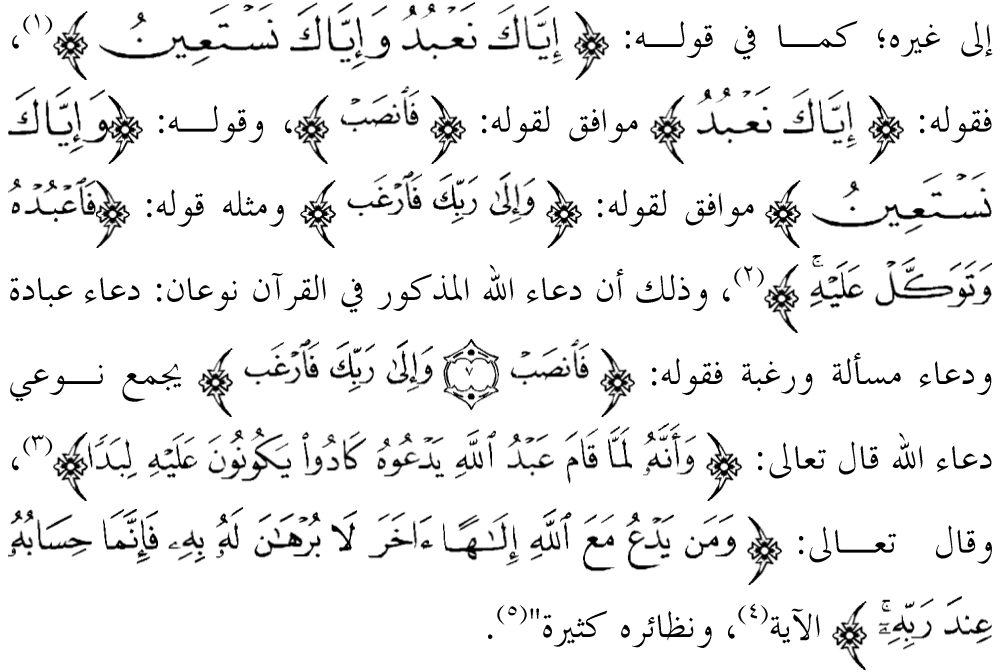 إلى غيره؛ كمـــا في قولـــه: ﴿ إِيَّاكَ نَعْبُدُ وَإِيَّاكَ نَسْتَعِينُ ﴾(١)،
فقوله: ﴿ إِيَّاكَ نَعْبُدُ ﴾ موافق لقوله: ﴿ فَٱنصَبْ ﴾، وقولـــه: ﴿وَإِيَّاكَ
نَسْتَعِينُ ﴾ موافق لقوله: ﴿ وَإِلَىٰ رَبِّكَ فَٱرْغَب ﴾ ومثله قوله: ﴿فَٱعْبُدْهُ
وَتَوَكَّلْ عَلَيْهِۚ ﴾(٢)، وذلك أن دعاء الله المذكور في القرآن نوعان: دعاء عبادة
ودعاء مسألة ورغبة فقوله: ﴿ فَٱنصَبْ ٧ وَإِلَىٰ رَبِّكَ فَٱرْغَب ﴾ يجمع نـــوعي
دعاء الله قال تعالى: ﴿ وَأَنَّهُۥ لَمَّا قَامَ عَبْدُ ٱللَّهِ يَدْعُوهُ كَادُوا۟ يَكُونُونَ عَلَيْهِ لِبَدًا﴾(٣)،
وقال تعـــالى: ﴿ وَمَن يَدْعُ مَعَ ٱللَّهِ إِلَـٰهًا ءَاخَرَ لَا بُرْهَـٰنَ لَهُۥ بِهِۦ فَإِنَّمَا حِسَابُهُۥ
عِندَ رَبِّهِۦٓۚ ﴾ الآية(٤)، ونظائره كثيرة"(٥).